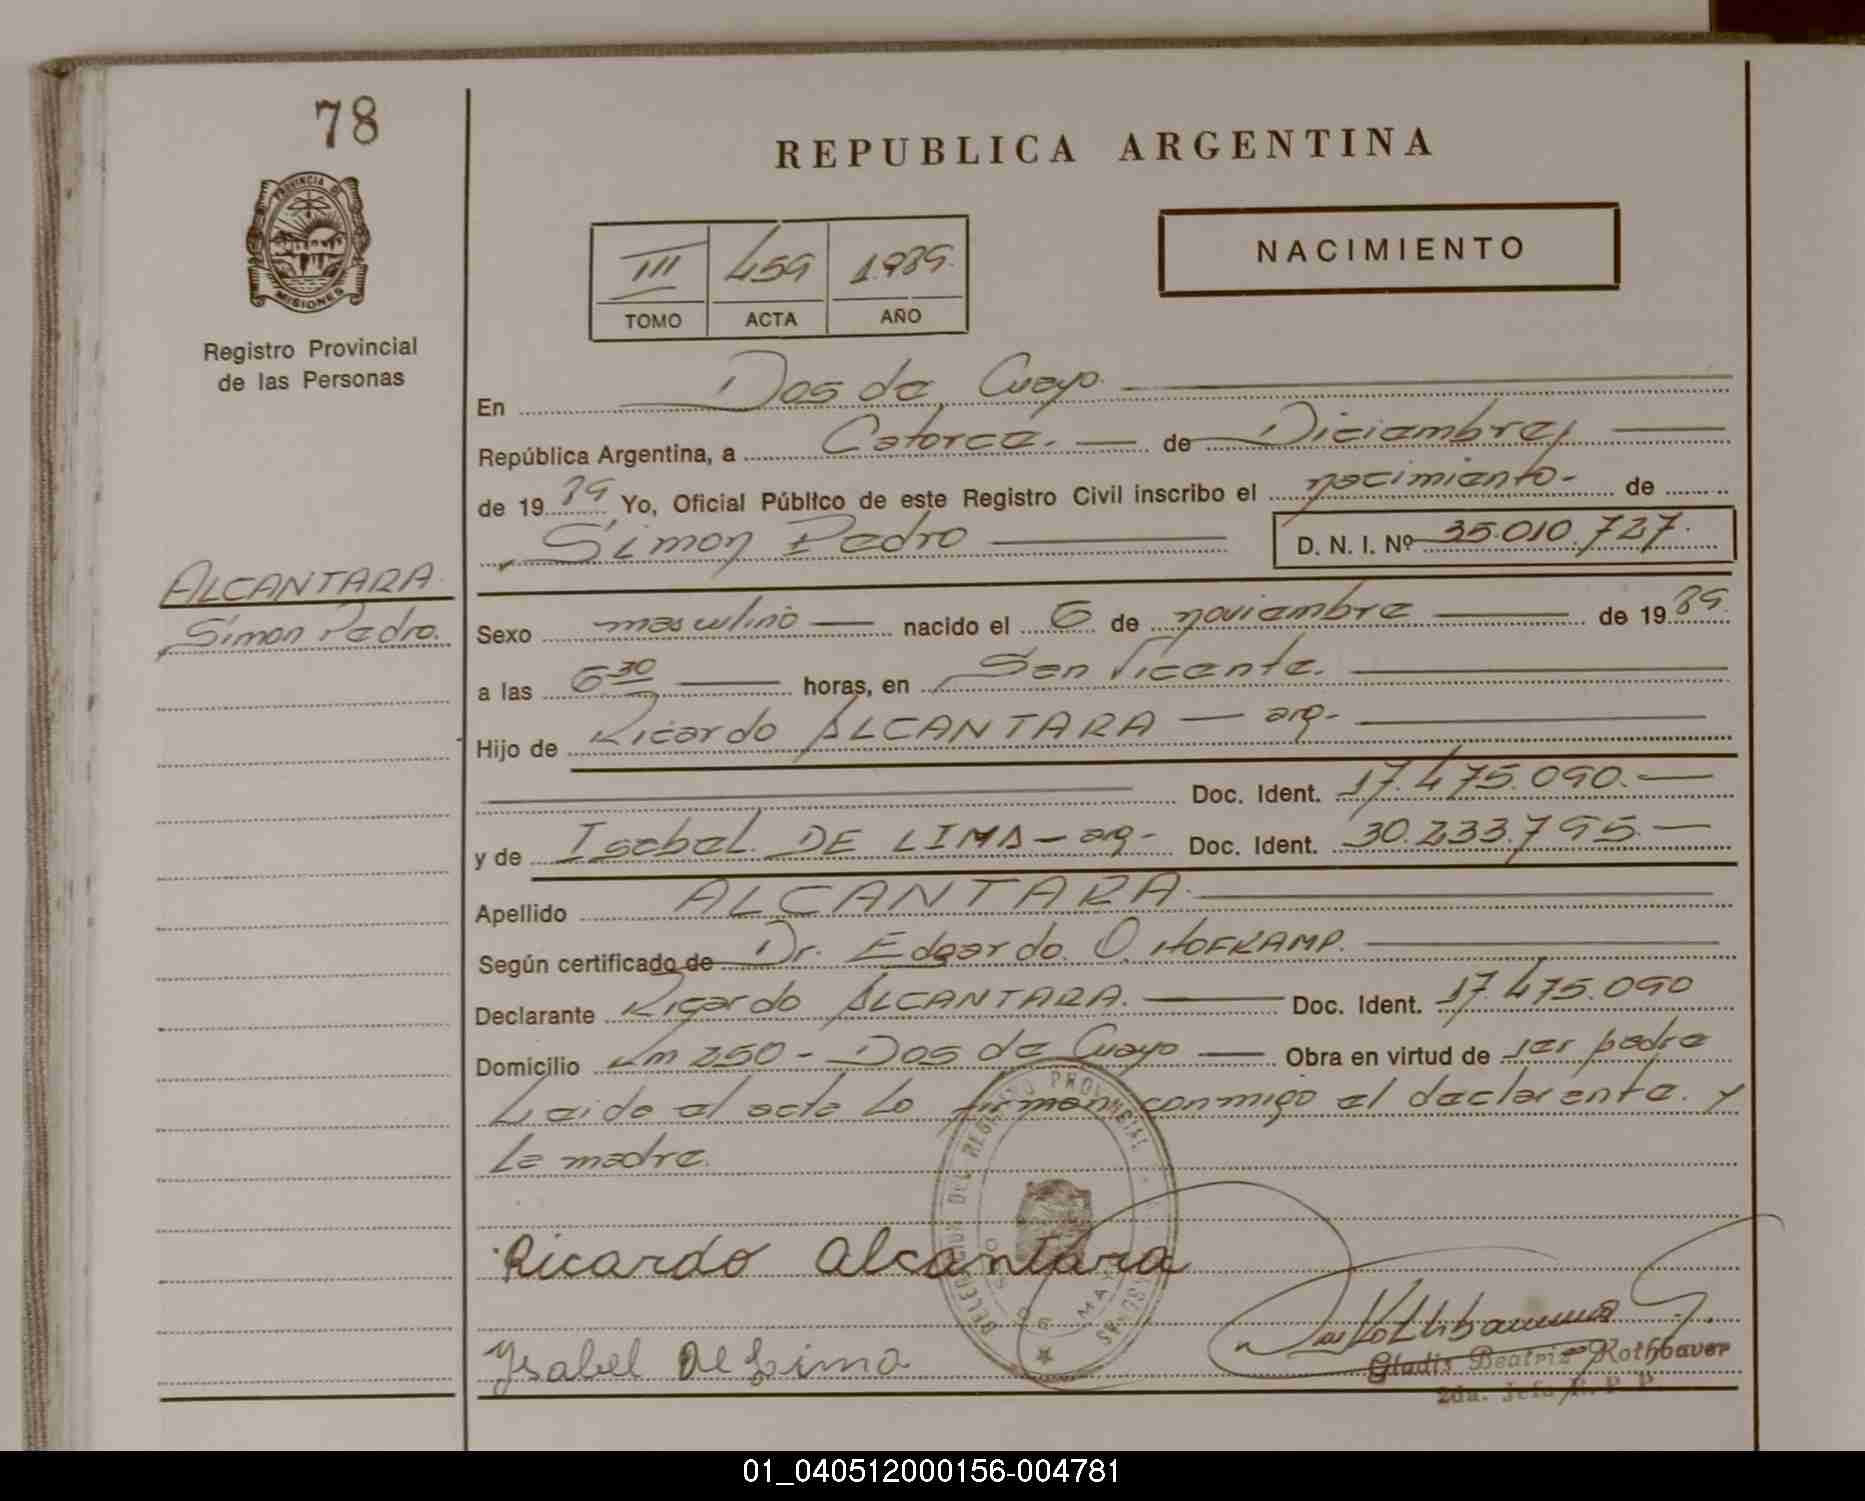 78
REPUBLICA ARGENTINA
PROVINCIA DE
MISIONES
Registro Provincial
de las Personas
III 459 1.989.
TOMO ACTA AÑO
NACIMIENTO
En Dos de Mayo.
República Argentina, a Catorce. de Diciembre,
de 1989 Yo, Oficial Público de este Registro Civil inscribo el nacimiento- de
Simon Pedro D. N. I. Nº 35.010.727.
ALCANTARA
Simon Pedro.
Sexo masculino nacido el 6 de noviembre de 1989.
a las 6 30 horas, en San Vicente.
Hijo de Ricardo ALCANTARA — arg-
Doc. Ident. 17.475.090.
y de Isabel DE LIMA - arg- Doc. Ident. 30.233.795.
Apellido ALCANTARA.
Según certificado de Dr. Edgardo O. HOFKAMP.
Declarante Ricardo ALCANTARA. Doc. Ident. 17.475.090
Domicilio Km 250 - Dos de Mayo Obra en virtud de ser padre
Leido el acta Lo firman conmigo el declarante. y
La madre.
DELEGACION DEL REGISTRO PROVINCIAL
Ricardo Alcantara
Ysabel De Lima
Gladis Beatriz Rothbauer
2da. Jefa R. P. P.
01_040512000156-004781